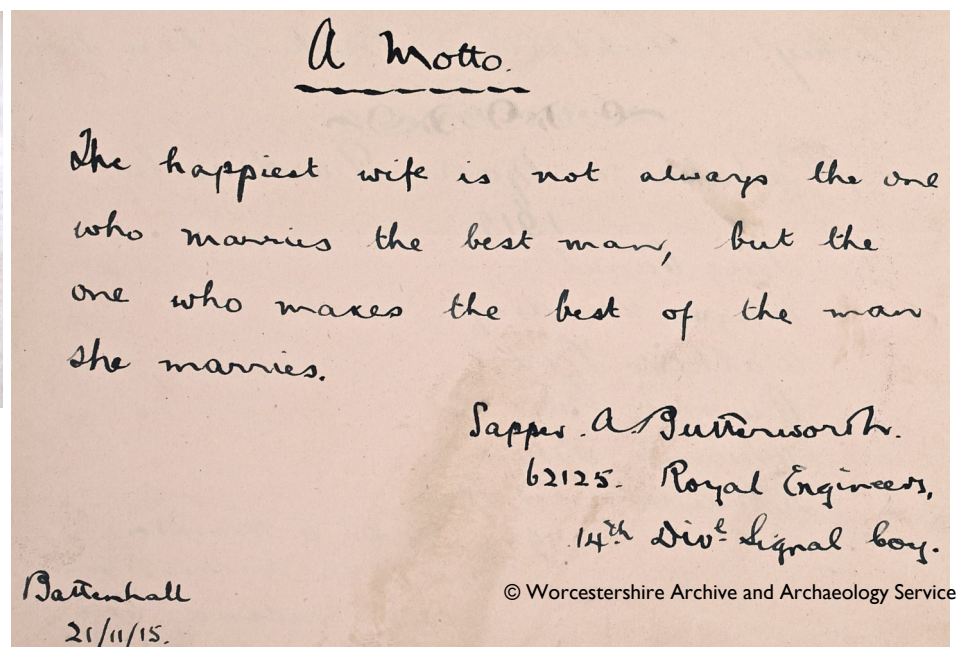 A Motto.
The happiest wife is not always the one
who marries the best man, but the
one who makes the best of the man
she marries.
Sapper. A. Butterworth.
62125. Royal Engineers,
14th Divl Signal Coy.
Battenhall
21/11/15.
© Worcestershire Archive and Archaeology Service